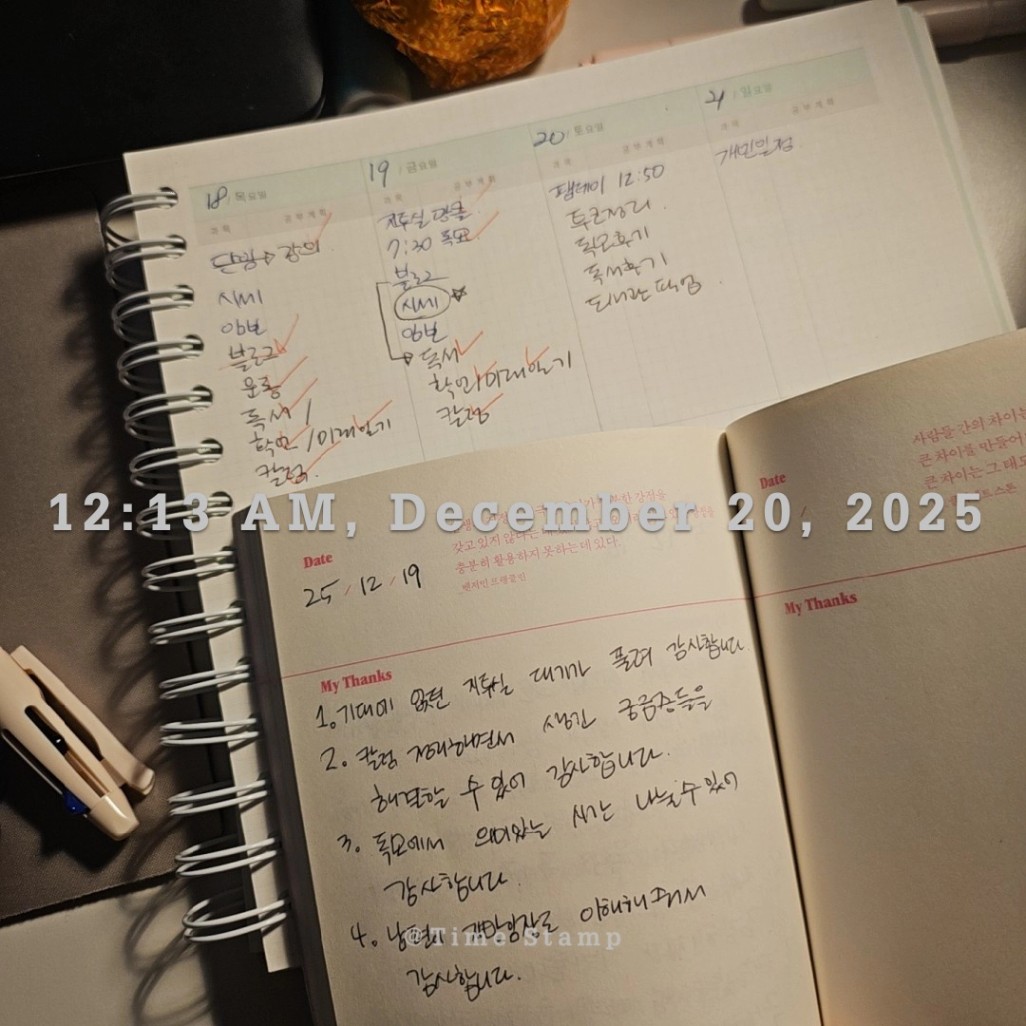 18 / 목요일
과목 공부계획
단임→강의
시세
앙보
블로그
운동
독서 /
확언 / 미래일기
칼럼
19 / 금요일
과목 공부계획
지투실 댓글
7:30 독모
블로그
시세
앙보
독서
확언/미래일기
칼럼
20 / 토요일
과목 공부계획
팸데이 12:50
투코정리
독모후기
독서후기
도서관 픽업
21 / 일요일
과목 공부계획
개인일정
12:13 AM, December 20, 2025
Date
25 / 12 / 19
갖고 있지 않다는
충분히 활용하지 못하는 데 있다.
벤저민 프랭클린
My Thanks
1. 기대에 없던 지투실 대기가 풀려 감사합니다
2. 칼럼 정리하면서 생긴 궁금증들을
해결할 수 있어 감사합니다.
3. 독모에서 의미있는 시간 나눌 수 있어
감사합니다.
4. 남편의 이해해줘서
감사합니다.
@Time Stamp
Date
사람들 간의 차이는
큰 차이를 만들어
큰 차이는 그 태도
My Thanks